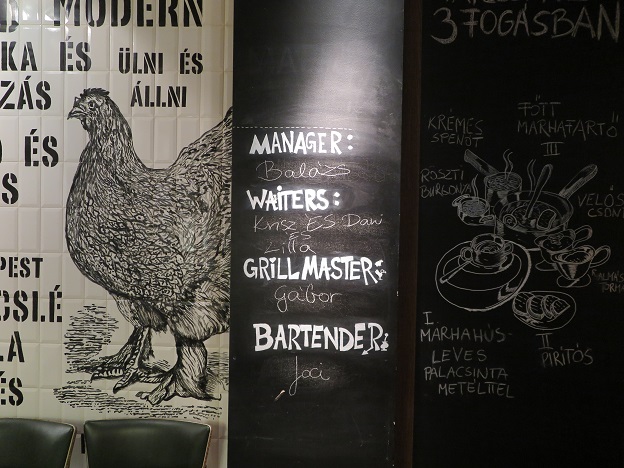 MODERN
KA ÉS
ÜLNI ÉS
ZÁS
ÁLLNI
ÉS
S
PEST
CSLÉ
LA
ÉS
MANAGER:
Balázs
WAITERS:
Krisz ES Dani
ES
Zilla
GRILL MASTER:
Gábor
BARTENDER:
Joci
3 FOGÁSBAN
KRÉMES
SPENÓT
FŐTT
MARHATARTŐ
III
ROSZTI
BURGONYA
VELŐS
CSONT
I.
MARHAHÚS-
LEVES
PALACSINTA
METÉLTTEL
II
PIRÍTÓS